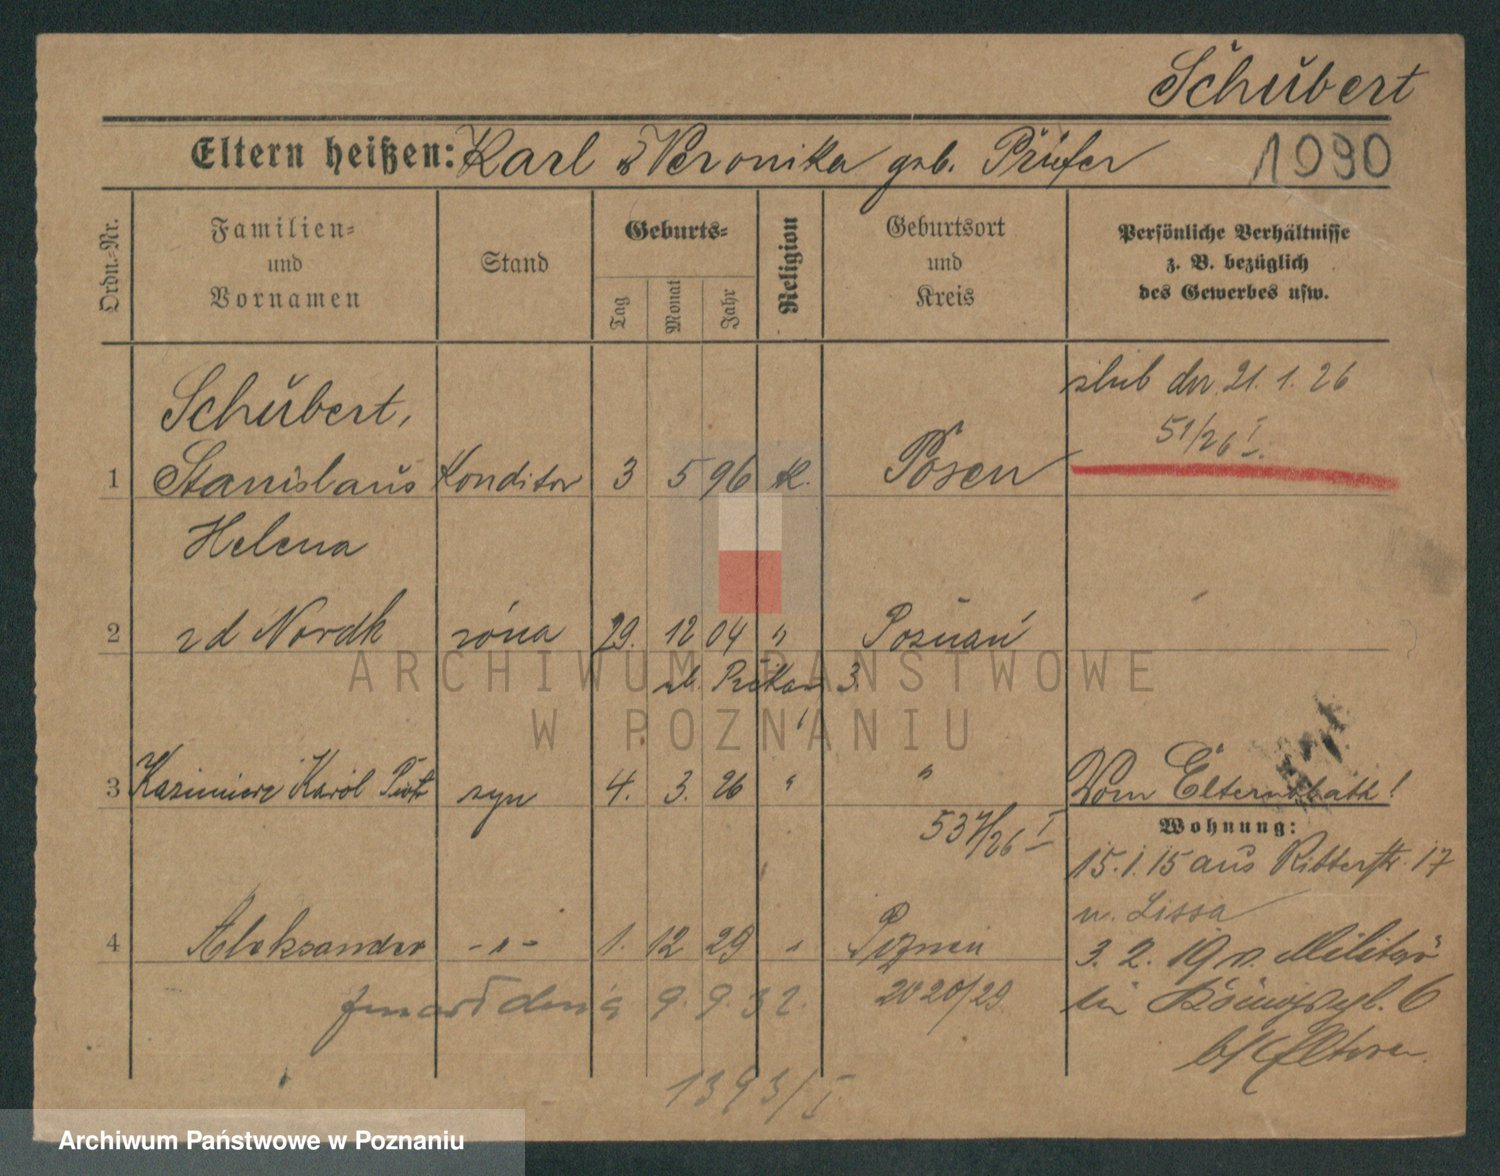 Schubert
Eltern heißen: Karl u. Veronika geb. Prüfer 1090
Ordn.-Nr.
Familien- und Vornamen
Stand
Geburts-
Tag Monat Jahr
Religion
Geburtsort und Kreis
Persönliche Verhältnisse z. B. bezüglich des Gewerbes usw.
ślub dn. 21. 1. 26
51/26 I.
Schubert,
1 Stanislaus Konditor 3 5 96 K. Posen
Helena
2 zd Nordk żona 29. 12 04 " Poznań
3.
3 Kazimierz Karol Piotr syn 4. 3. 26 " " Vom Elternblatt!
537/26 I
Wohnung:
15.1.15 aus Ritterstr. 17
n. Lissa
4 Aleksander -"- 1. 12 29 " Poznań
3. 2. 19 v. Militär
2020/29
zmarł dnia 9. 9. 32.
6
b/ Eltern
1393/I
ARCHIWUM PAŃSTWOWE
W POZNANIU
Archiwum Państwowe w Poznaniu